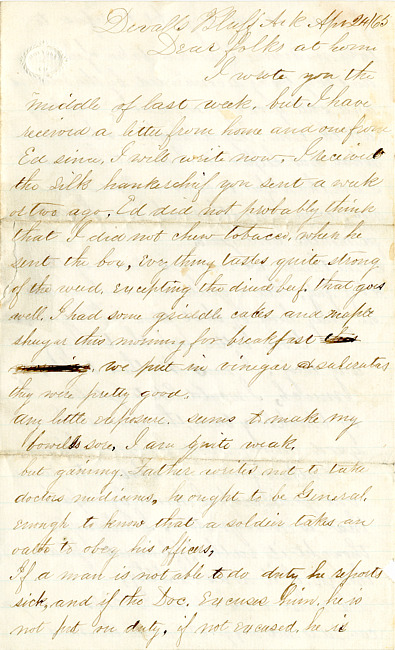 Devalls Bluff Ark, Apr 24/65
Dear folks at home
I wrote you the
middle of last week, but I have
received a letter from home and one from
Ed since, I will write now, I received
the Silk hankerchief you sent a week
or two ago, Ed did not probably think
that I did not chew tobacco, when he
sent the box, Everything tastes quite strong
of the weed, excepting the dried beef. that goes
well. I had some griddle cakes and maple
shugar this morning for breakfast this
morning, we put in vinegar & saleratus
they were pretty good.
Any little exposure. seems to make my
bowells sore, I am quite weak.
but gaining. Father writes not to take
doctors medicines, he ought to be General,
enough to know that a soldier takes an
oath to obey his officers,
If a man is not able to do duty he reports
sick, and if the Doc. Excuses him, he is
not put on duty, if not excused, he is